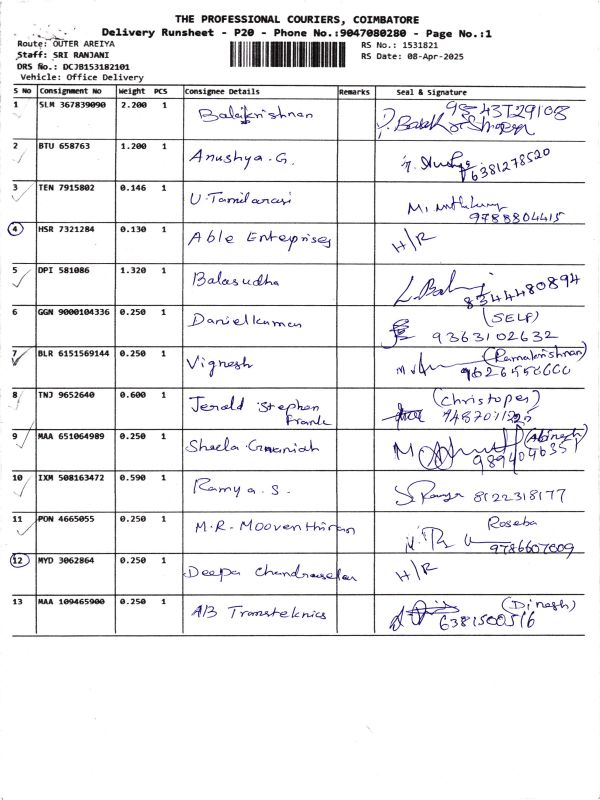 THE PROFESSIONAL COURIERS, COIMBATORE
Delivery Runsheet - P20 - Phone No.:9047080280 - Page No.:1
Route: OUTER AREIYA RS No.: 1531821
Staff: SRI RANJANI RS Date: 08-Apr-2025
DRS No.: DCJB153182101
Vehicle: Office Delivery
S No Consignment No Weight PCS Consignee Details Remarks Seal & Signature
1 SLM 367839090 2.200 1 Balakrishnan
2 BTU 658763 1.200 1 Anushya.G. 6381278520
3 TEN 7915802 0.146 1 U.Tamilarasi 9788804415
4 HSR 7321284 0.130 1 Able Enterprises H/R
5 DPI 581086 1.320 1 Balasudha 8344480894
6 GGN 9000104336 0.250 1 Danielkumar (SELF) 9363102632
7 BLR 6151569144 0.250 1 Vignesh (Ramakrishnan)
8 TNJ 9652640 0.600 1 Jerald Stephen Frank (Christoper)
9 MAA 651064989 0.250 1 Sheela (Abinesh)
10 IXM 508163472 0.590 1 Ramya.S. 8122318177
11 PON 4665055 0.250 1 M.R. Mooventhiran Roseba 9786607009
12 MYD 3062864 0.250 1 Deepa Chandrasekar H/R
13 MAA 109465900 0.250 1 AB Transteknics (Dinesh) 6381500516